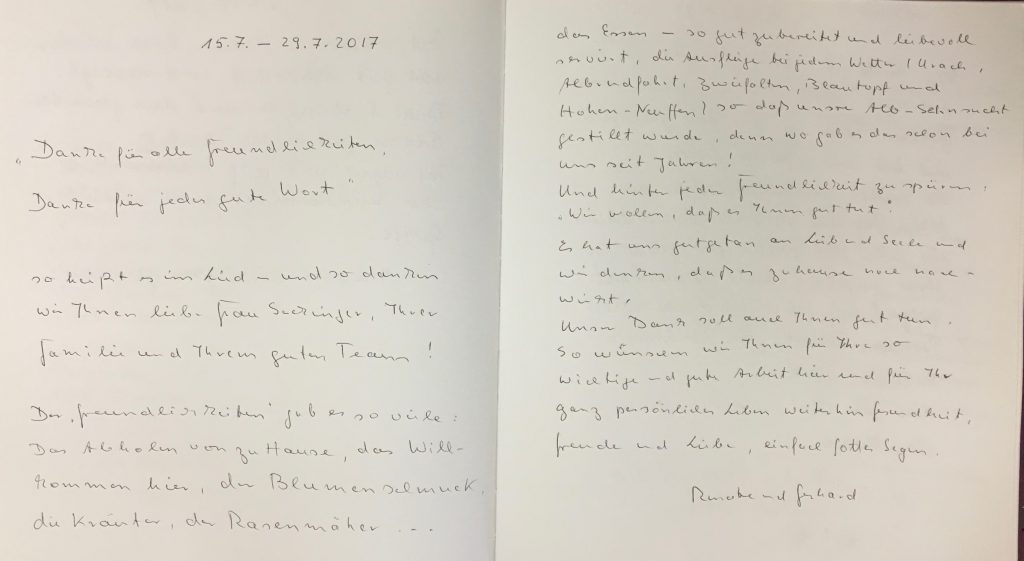 15.7. – 29.7.2017
„Danke für alle Freundlichkeiten,
Danke für jedes gute Wort"
so heißt es im Lied – und so danken
wir Ihnen liebe Frau, Ihrer
Familie und Ihrem guten Team!
Der „Freundlichkeiten" gab es so viele:
Das Abholen von zu Hause, das Will-
kommen hier, der Blumenschmuck,
die Kräuter, der Rasenmäher ...
das Essen – so gut zubereitet und liebevoll
serviert, die Ausflüge bei jedem Wetter (Urach,
Albrundfahrt, Zwiefalten, Blautopf und
Hohen-Neuffen) so daß unsere Alb-Sehnsucht
gestillt wurde, denn wo gab es das schon bei
uns seit Jahren!
Und hinter jeder Freundlichkeit zu spüren:
„Wir wollen, daß es Ihnen gut tut".
Es hat uns gutgetan an Leib und Seele und
wir denken, daß es zuhause noch nach-
wirkt.
Unser Dank soll auch Ihnen gut tun.
So wünschen wir Ihnen für Ihre so
wichtige und gute Arbeit hier und für Ihr
ganz persönliches Leben weiterhin Gesundheit,
Freude und Liebe, einfach Gottes Segen.
und Gerhard